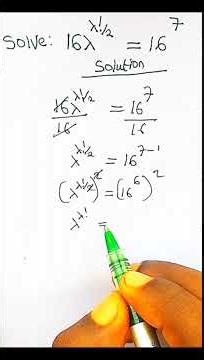 Solve: 16λ^(λ!/2) = 16^7
Solution
16λ^(λ!/2)/16 = 16^7/16
λ^(λ!/2) = 16^(7-1)
(λ^(λ!/2))^2 = (16^6)^2
λ^(λ!) =